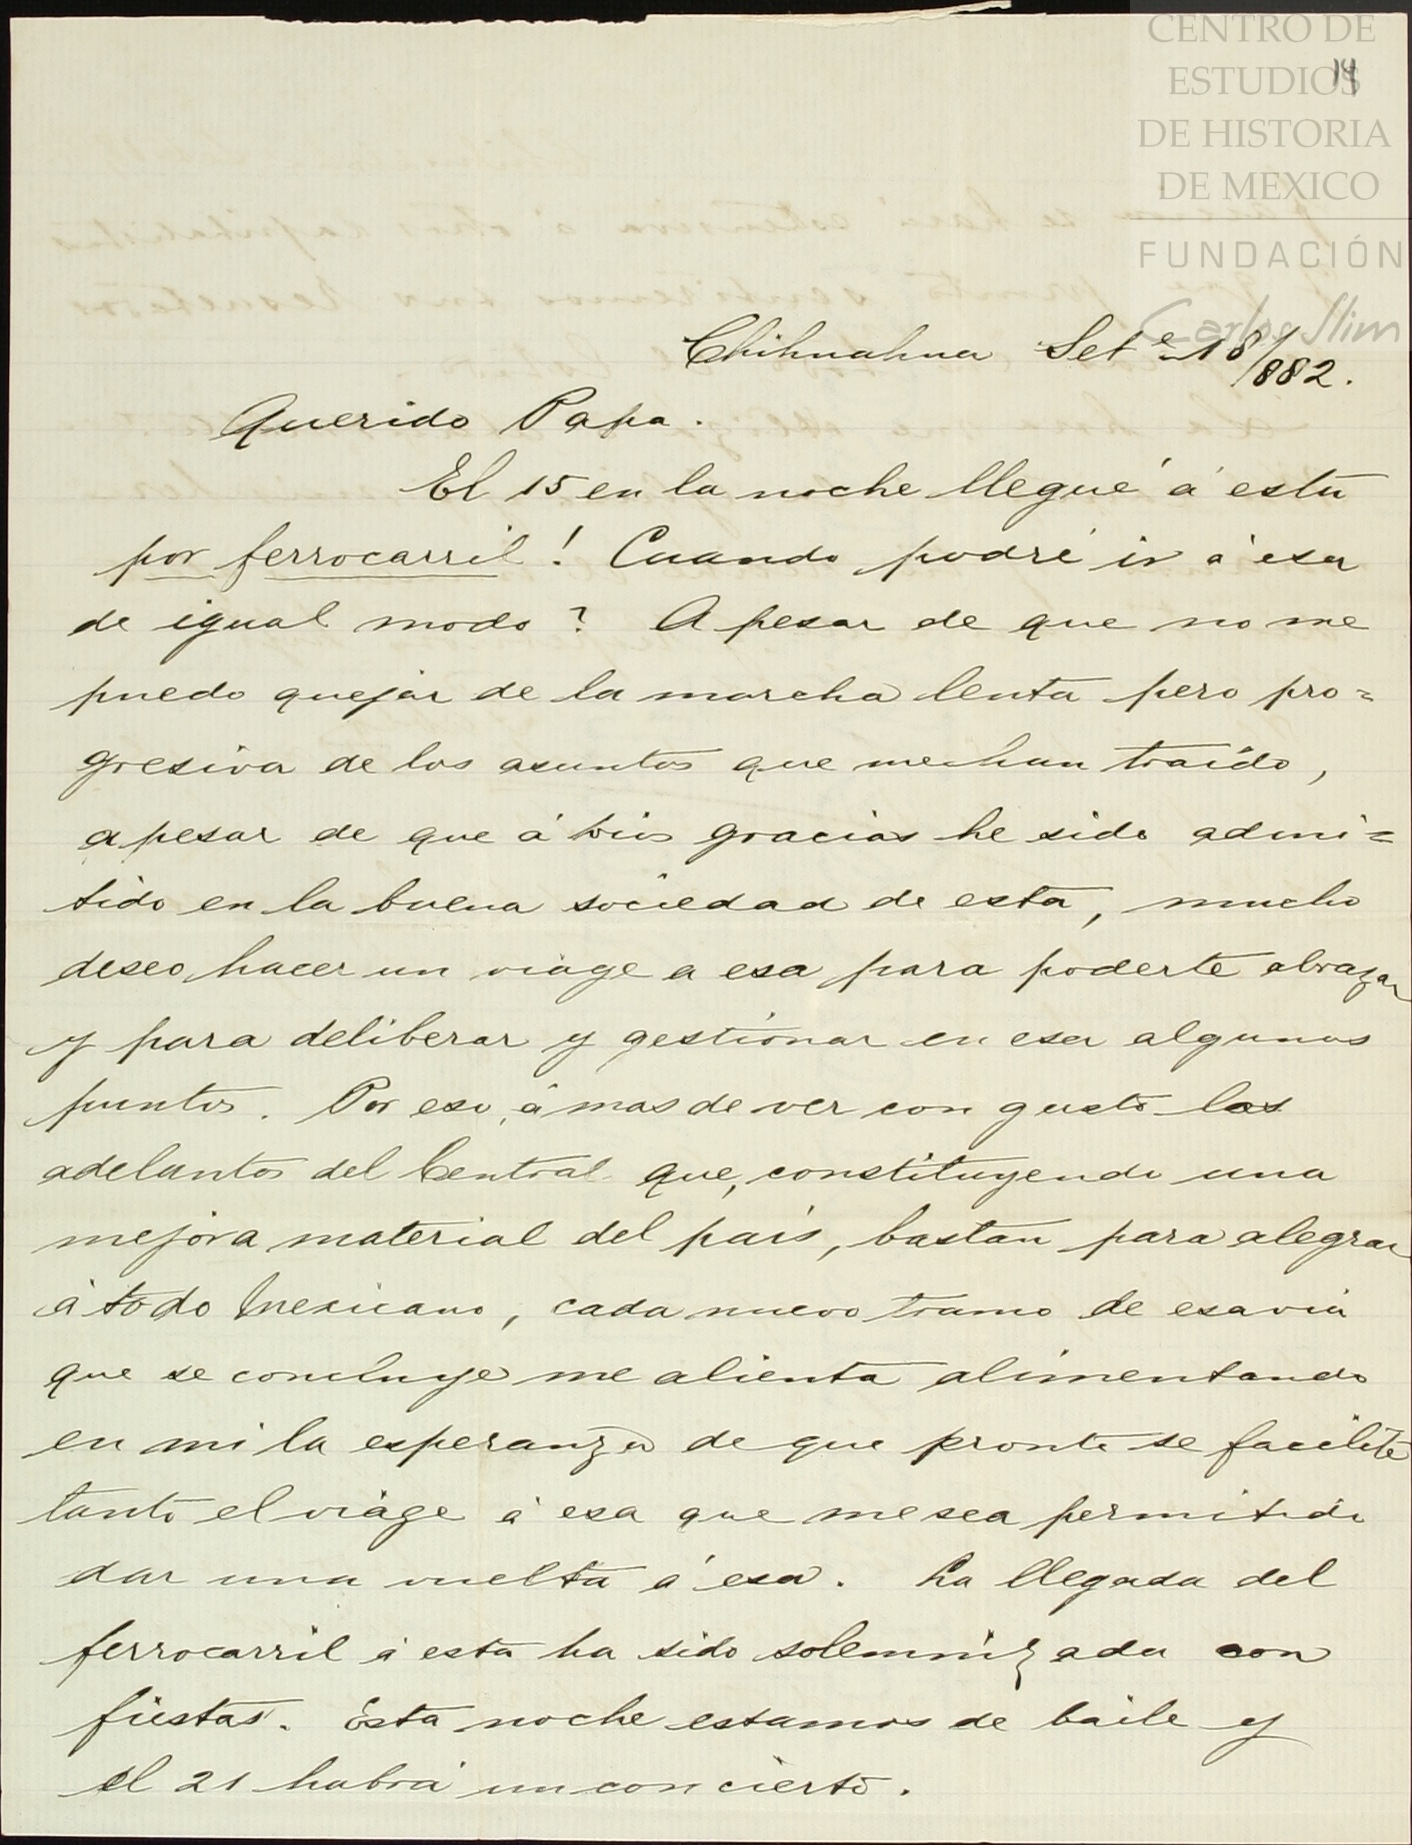 CENTRO DE
ESTUDIOS
DE HISTORIA
DE MEXICO
FUNDACIÓN
Carlos Slim
14
Chihuahua Set.e 18/882.
Querido Papa.
El 15 en la noche llegué á esta
por ferrocarril! Cuando podré ir á esa
de igual modo? A pesar de que no me
puedo quejar de la marcha lenta pero pro=
gresiva de los asuntos que me han traido,
a pesar de que á Dios gracias he sido admi=
tido en la buena sociedad de esta, mucho
deseo hacer un viage a esa para poderte abrazar
y para deliberar y gestionar en esa algunos
puntos. Por eso, á mas de ver con gusto los
adelantos del Central que, constituyendo una
mejora material del país, bastan para alegrar
á todo Mexicano, cada nuevo tramo de esa via
que se concluye me alienta alimentando
en mi la esperanza de que pronto se facilite
tanto el viage á esa que me sea permitido
dar una vuelta á esa. La llegada del
ferrocarril á esta ha sido solemnizada con
fiestas. Esta noche estamos de baile y
el 21 habrá un concierto.